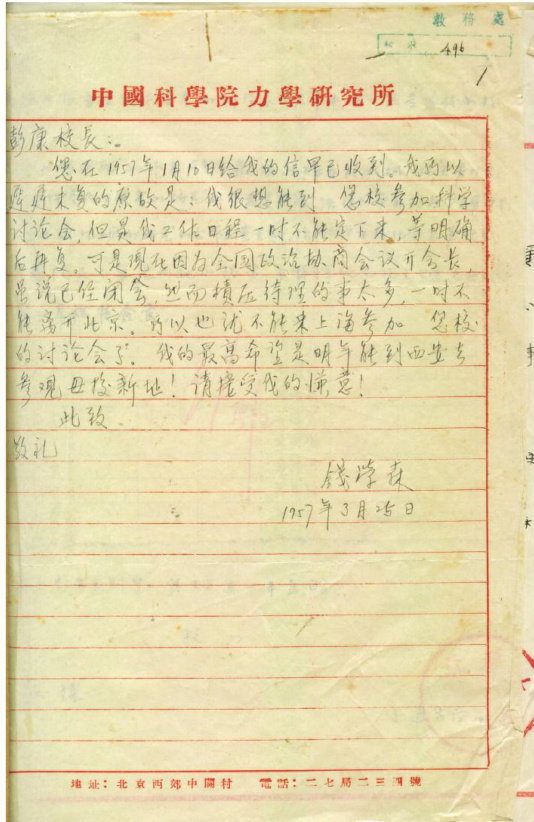 教務處
496
1
中國科學院力學研究所
彭康校长：
您在1957年1月10日给我的信早已收到。我所以
迟迟未复的原故是：我很想能到 您校参加科学
讨论会，但是我工作日程一时不能定下来，等明确
后再复。可是现在因为全国政治协商会议开会长，
虽说已经闭会，然而積压待理的事太多，一时不
能离开北京。所以也就不能来上海参加 您校
的讨论会了。我的最高希望是明年能到西安去
参观母校新址！请接受我的慊意！
此致
敬礼
钱学森
1957年3月25日
地址：北京西郊中關村 電話：二七局二三四號